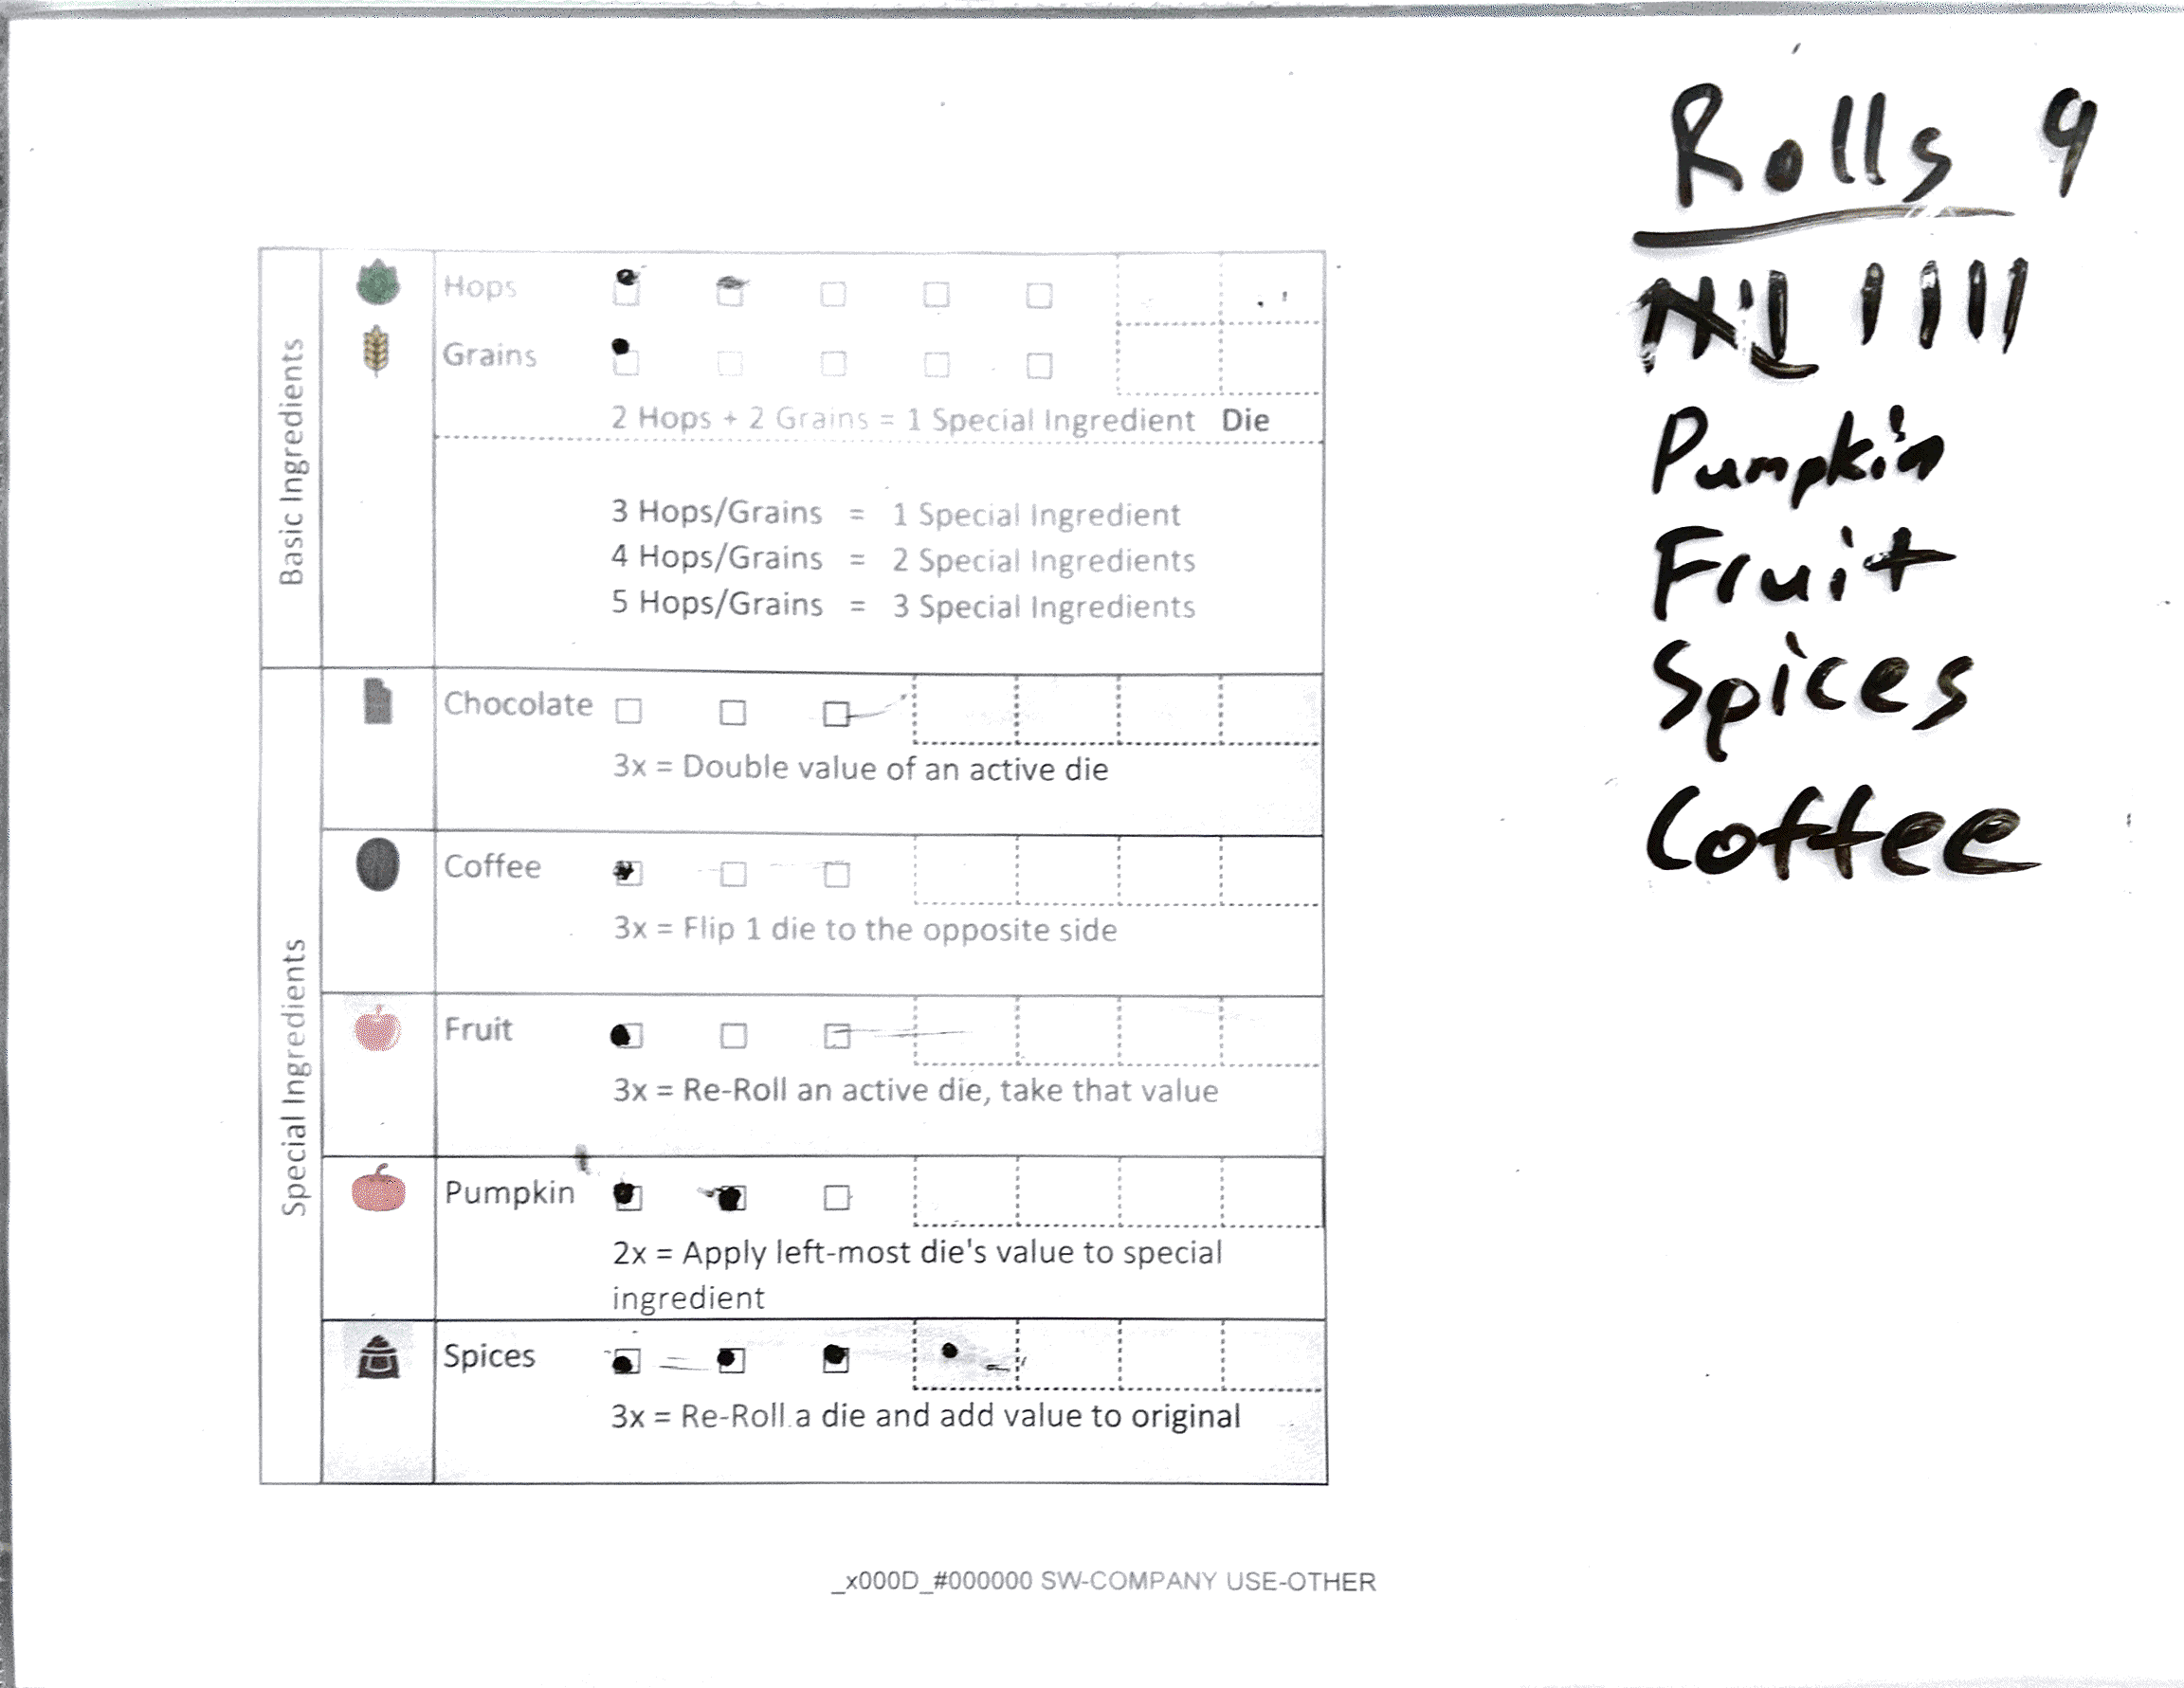 Rolls 9
Basic Ingredients
Hops
Grains
2 Hops + 2 Grains = 1 Special Ingredient Die
3 Hops/Grains = 1 Special Ingredient
4 Hops/Grains = 2 Special Ingredients
5 Hops/Grains = 3 Special Ingredients
Special Ingredients
Chocolate
3x = Double value of an active die
Coffee
3x = Flip 1 die to the opposite side
Fruit
3x = Re-Roll an active die, take that value
Pumpkin
2x = Apply left-most die's value to special
ingredient
Spices
3x = Re-Roll a die and add value to original
Pumpkin
Fruit
Spices
Coffee
_x000D_#000000 SW-COMPANY USE-OTHER